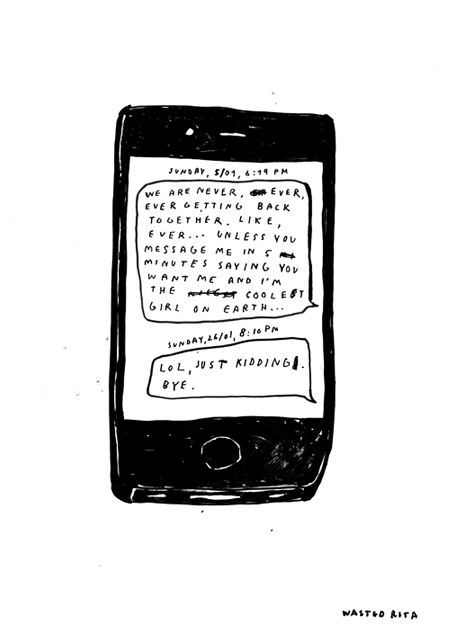 SUNDAY, 5/01, 6:19 PM
WE ARE NEVER, EVER,
EVER GETTING BACK
TOGETHER. LIKE,
EVER... UNLESS YOU
MESSAGE ME IN 5
MINUTES SAYING YOU
WANT ME AND I'M
THE COOLEST
GIRL ON EARTH...
SUNDAY, 26/01, 8:10 PM
LOL, JUST KIDDING.
BYE.
WASTED RITA